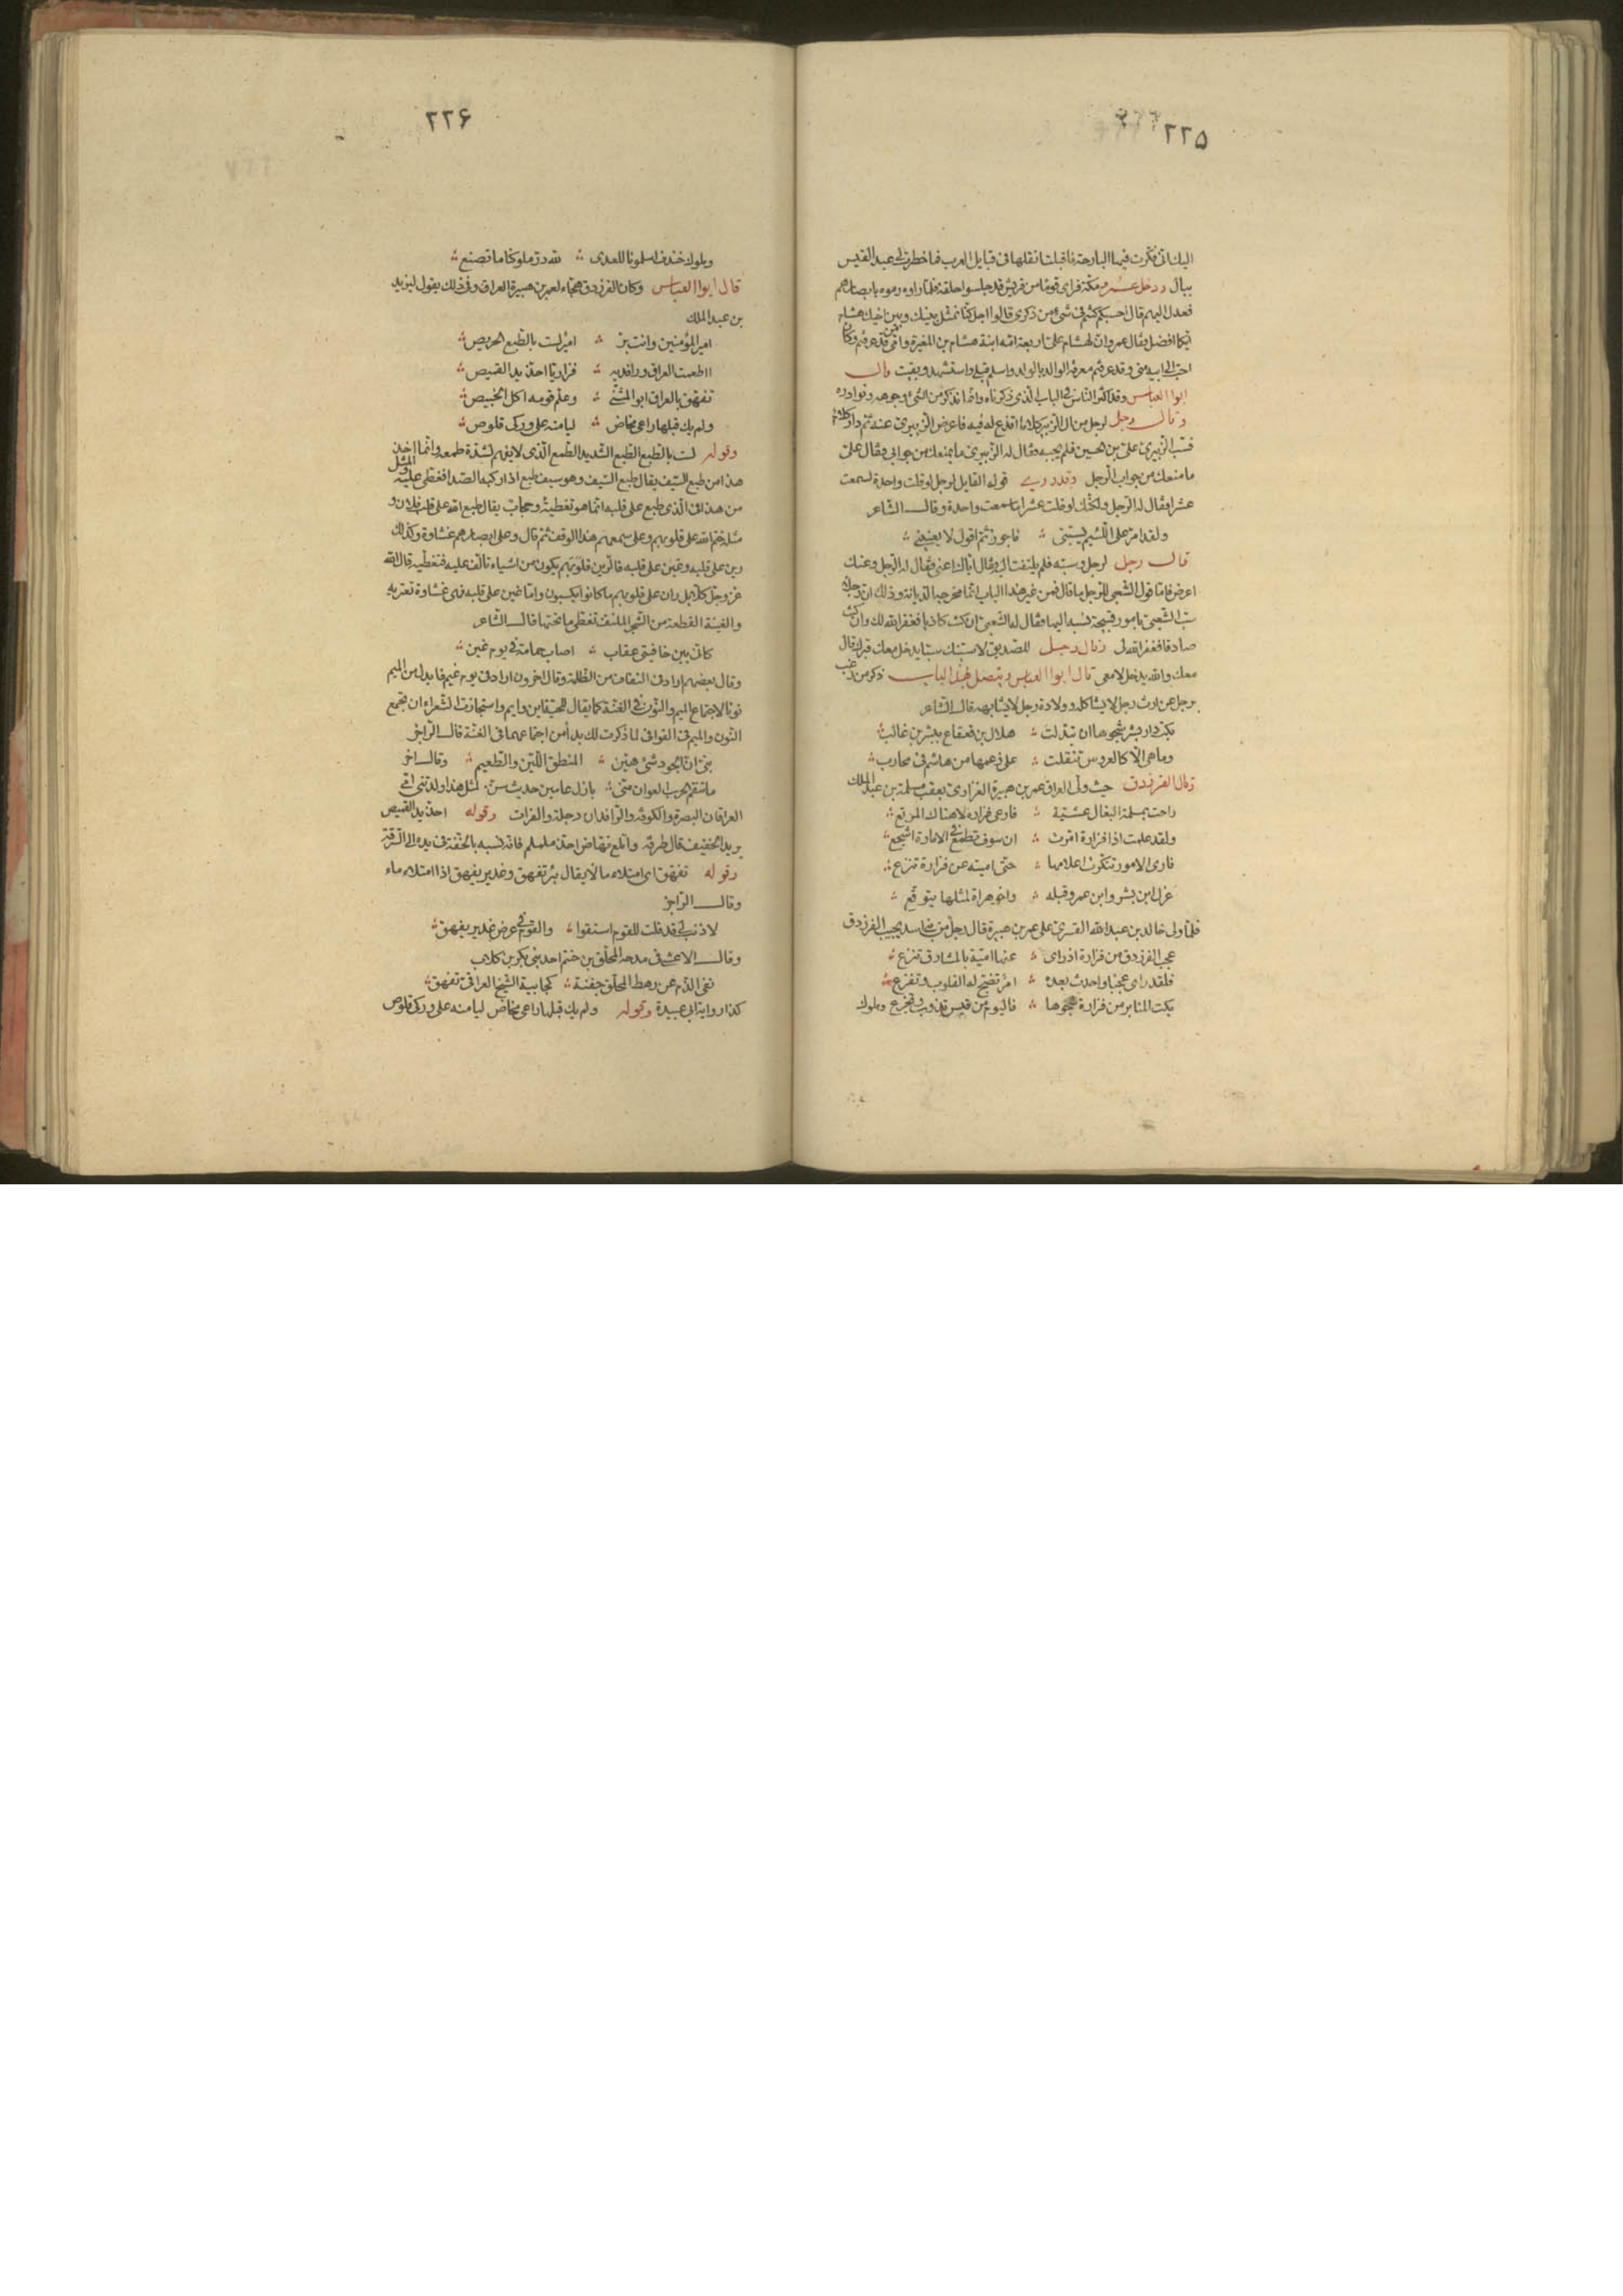 ٢٢۵
اليك انى فكرت فيها البارحة فاقبلت انقلها فى قبايل العرب فما خطرت لى عبد القيس
ببال ودخل عمرو مكة فراى قوما من قريش قد جلسوا حلقة فلما راوه رموه بابصارهم
فعدل اليهم قال احسبكم كنتم فى شىء من ذكرى قالوا اجل كنا نمثل بينك وبين اخيك هشام
ايكما افضل فقال عمرو ان لهشام على اربعة امه ابنة هشام بن المغيرة وامى من قد عرفتم وكان
احب الى ابيه منى وقد عرفتم معرفة الوالد بالولد واسلم قبلى واستشهد وبقيت قال
ابوا العباس وقد اكثر الناس فى الباب الذى ذكرناه وانما نذكر من الشىء وجوهه ونوادره
وقال رجل لرجل من ال الزبير كلاما اقذع له فيه فاعرض الزبيرى عنه ثم دار كلام
فسب الزبيرى على بن الحسين فلم يجبه فقال له الزبيرى ما يمنعك من جوابى فقال على
ما منعك من جواب الرجل وقد روى قوله القايل لرجل لو قلت واحدة لسمعت
عشرا فقال له الرجل ولكنك لو قلت عشرا ما سمعت واحدة وقال الشاعر
ولقد امر على اللئيم يسبنى فاجوز ثم اقول لا يعنينى
قال رجل لرجل وسبه فلم يلتفت اليه فقال اياك اعنى فقال له الرجل وعنك
اعرض فاما قول الشعبى للرجل ما قال فمن غير هذا الباب انما مخرجه الديانة وذلك ان رجلا
سب الشعبى بامور قبيحة نسبه اليها فقال له الشعبى ان كنت كاذبا فغفر الله لك وان كنت
صادقا فغفر الله لى وقال رجل للصديق لاسبنك سبا يدخل معك قبرك قال
معك والله يدخل لا معى قال ابوا العباس ويتصل بهذا الباب ذكر من رغب
برجل عن ارث رجل لا يشاكله وولادة رجل لا يشابهه قال الشاعر
بكت دار بشر شجوها ان تبدلت هلال بن قعقاع ببشر بن غالب
وما هى الا كالعروس تنقلت على زعمها من هاشم فى محارب
وقال الفرزدق حيث ولى العراق عمر بن هبيرة الفزارى بعقب مسلمة بن عبد الملك
راحت بمسلمة البغال عشية فارعى فزارة لا هناك المرتع
ولقد علمت اذا فزارة امرت ان سوف تطمع فى الامارة اشجع
فارى الامور تنكرت اعلامها حتى امية عن فزارة تنزع
عزل ابن بشر وابن عمرو قبله واخو هراة لمثلها يتوقع
فلما ولى خالد بن عبد الله القسرى على عمر بن هبيرة قال رجل من بنى اسد يجيب الفرزدق
عجب الفرزدق من فزارة اذ راى عنها امية بالمشارق تنزع
فلقد راى عجبا واحدث بعده امر تضج له القلوب وتفزع
بكت المنابر من فزارة شجوها فاليوم من قيس تذوب وتجزع وملوك
٢٢۶
وملوك خندف اسلمونا للعدى لله در ملوكنا ما تصنع
قال ابوا العباس وكان الفرزدق هجاء لعمر بن هبيرة العراق وفى ذلك يقول ليزيد
بن عبد الملك
امير المؤمنين وانت بر امير لست بالطبع الحريص
ااطعمت العراق ورافديه فزاريا احذ يد القميص
تفهق بالعراق ابو المثنى وعلم قومه اكل الخبيص
ولم يك قبلها راعى مخاض ليامنه على وركى قلوص
وقوله لست بالطبع الطبع الشديد الطمع الذى لا يفهم لشدة طمعه وانما اخذ
هذا من طبع السيف يقال طبع السيف وهو سيف طبع اذا ركبه الصدا فغطى عليه والمثل
من هذا فى الذى طبع على قلبه انما هو تغطية وحجاب يقال طبع الله على قلب فلان و
مثله ختم الله على قلوبهم وعلى سمعهم هذا الوقف ثم قال وعلى ابصارهم غشاوة وكذلك
رين على قلبه وغين على قلبه فالرين قلوبهم يكون من اشياء تالف عليه فتغطيه قال الله
عز وجل كلا بل ران على قلوبهم ما كانوا يكسبون واما غين على قلبه فهى غشاوة تعتريه
والغينة القطعة من الشجر الملتف تغطى ما تحتها قال الشاعر
كانى بين خافيتى عقاب اصاب حمامة فى يوم غين
وقال بعضهم ارادف التفاف من الظلمة وقال اخرون اراد فى يوم غيم فابدل من الميم
نونا لاجتماع الميم والنون فى الغنة كما يقال للحية اين وايم واستجازت الشعراء ان تجمع
النون والميم فى القوافى لما ذكرت لك بدأ من اجتماعهما فى الغنة قال الراجز
بنى ان الجود شىء هين المنطق اللين والطعيم وقال اخر
ما تنقم الحرب العوان منى بازل عامين حديث سن لمثل هذا ولدتنى امى
العراقان البصرة والكوفة والرافدان دجلة والفرات وقوله احذ يد القميص
يريد الخفيف قال طرفة واتلع نهاض احذ ململم فانه نسبه بالخفة فى يده الى السرقة
وقوله تفهق اى امتلاء مالا يقال بئر تفهق وغدير يفهق اذا امتلاء ماء
وقال الراجز
لا ذنب لى قد قلت للقوم استقوا والقوم فى عرض غدير يفهق
وقال الاعشى فى مدحه المحلق بن خنتم احد بنى بكر بن كلاب
نفى الذم عن رهط المحلق جفنة كجابية الشيخ العراقى تفهق
كذا رواية ابى عبيدة وقوله ولم يك قبلها راعى مخاض ليامنه على وركى قلوص